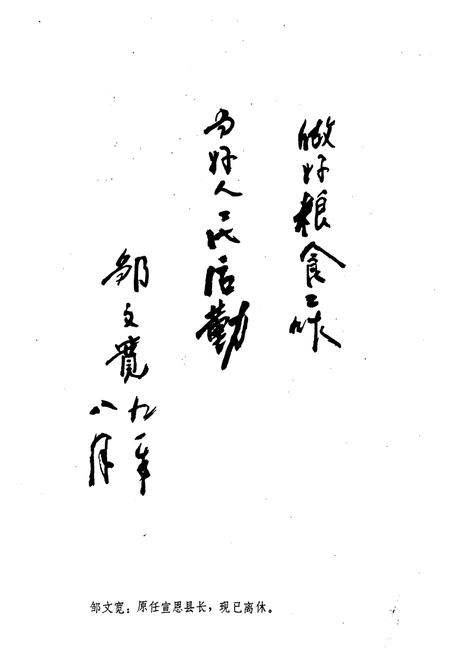 做好粮食工作
当好人民后勤
邹文宽
九一年
八月
邹文宽：原任宣恩县长，现已离休。